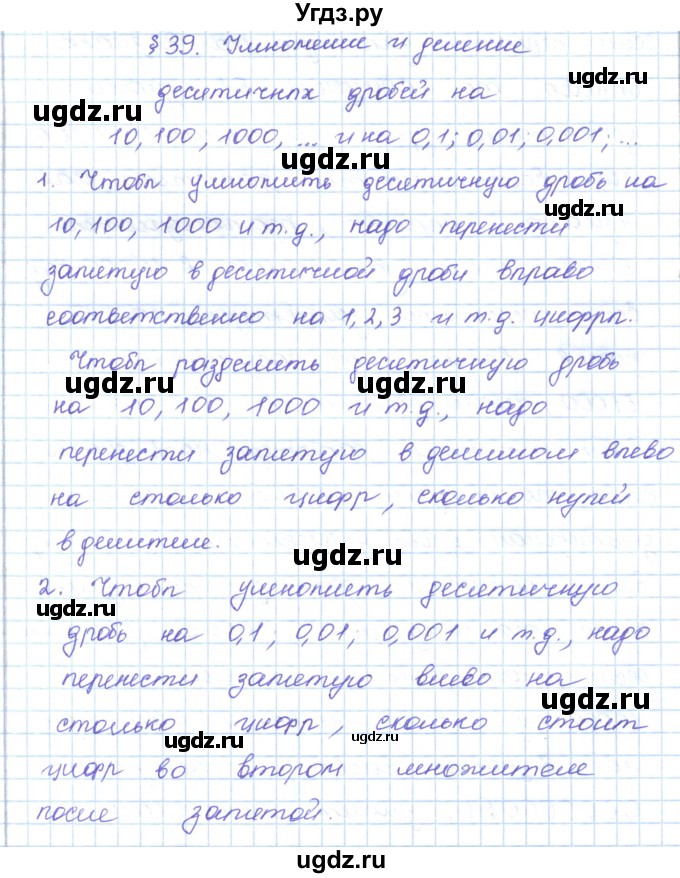 Угдз.ру
§ 39. Умножение и деление
десятичных дробей на
10, 100, 1000, ... и на 0,1; 0,01; 0,001; ...
1. Чтобы умножить десятичную дробь на
10, 100, 1000 и т.д., надо перенести
запятую в десятичной дроби вправо
соответственно на 1, 2, 3 и т.д. цифры.
Чтобы разделить десятичную дробь
на 10, 100, 1000 и т.д., надо
перенести запятую в делимом влево
на столько цифр, сколько нулей
в делителе.
2. Чтобы умножить десятичную
дробь на 0,1; 0,01; 0,001 и т.д., надо
перенести запятую влево на
столько цифр, сколько стоит
цифр во втором множителе
после запятой.
ugdz.ru
ugdz.ru
ugdz.ru
ugdz.ru
ugdz.ru
ugdz.ru
ugdz.ru
ugdz.ru
ugdz.ru
ugdz.ru
ugdz.ru
ugdz.ru